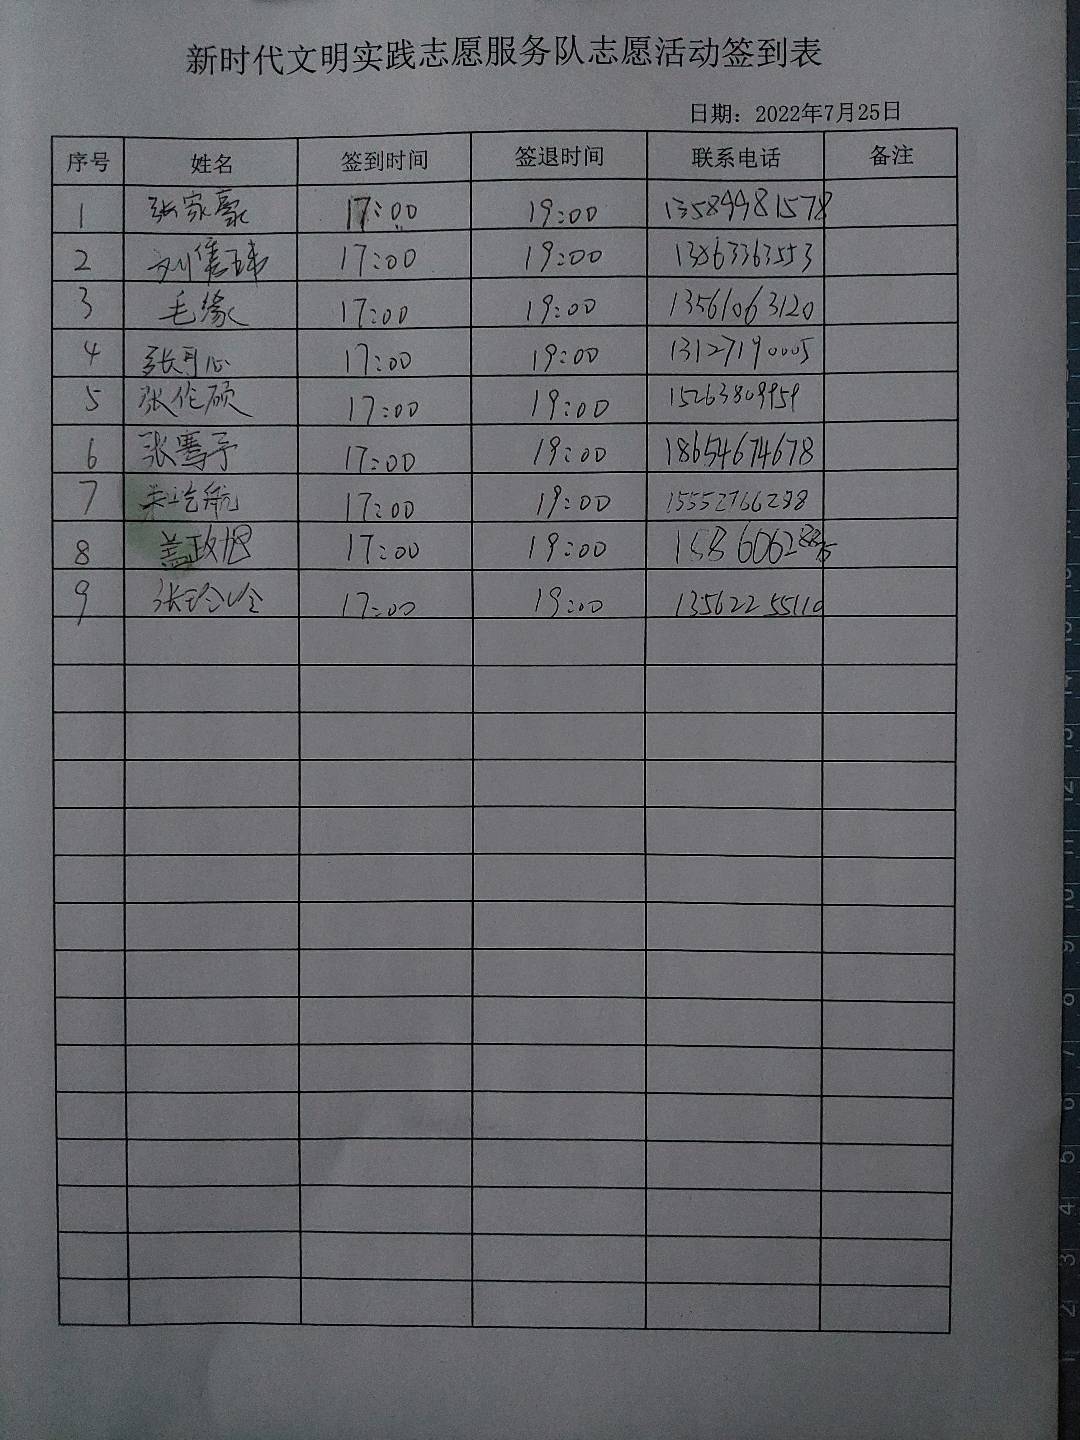 新时代文明实践志愿服务队志愿活动签到表
日期：2022年7月25日
序号 姓名 签到时间 签退时间 联系电话 备注
1 张家豪 17:00 19:00 13589981578
2 刘隽玮 17:00 19:00 13863363553
3 毛缘 17:00 19:00 13561063120
4 张可心 17:00 19:00 13127190005
5 张伦硕 17:00 19:00 15263809959
6 张骞予 17:00 19:00 18654674678
7 17:00 19:00 15552766288
8 盖政旭 17:00 19:00
9 张玲玲 17:00 19:00 13562255110